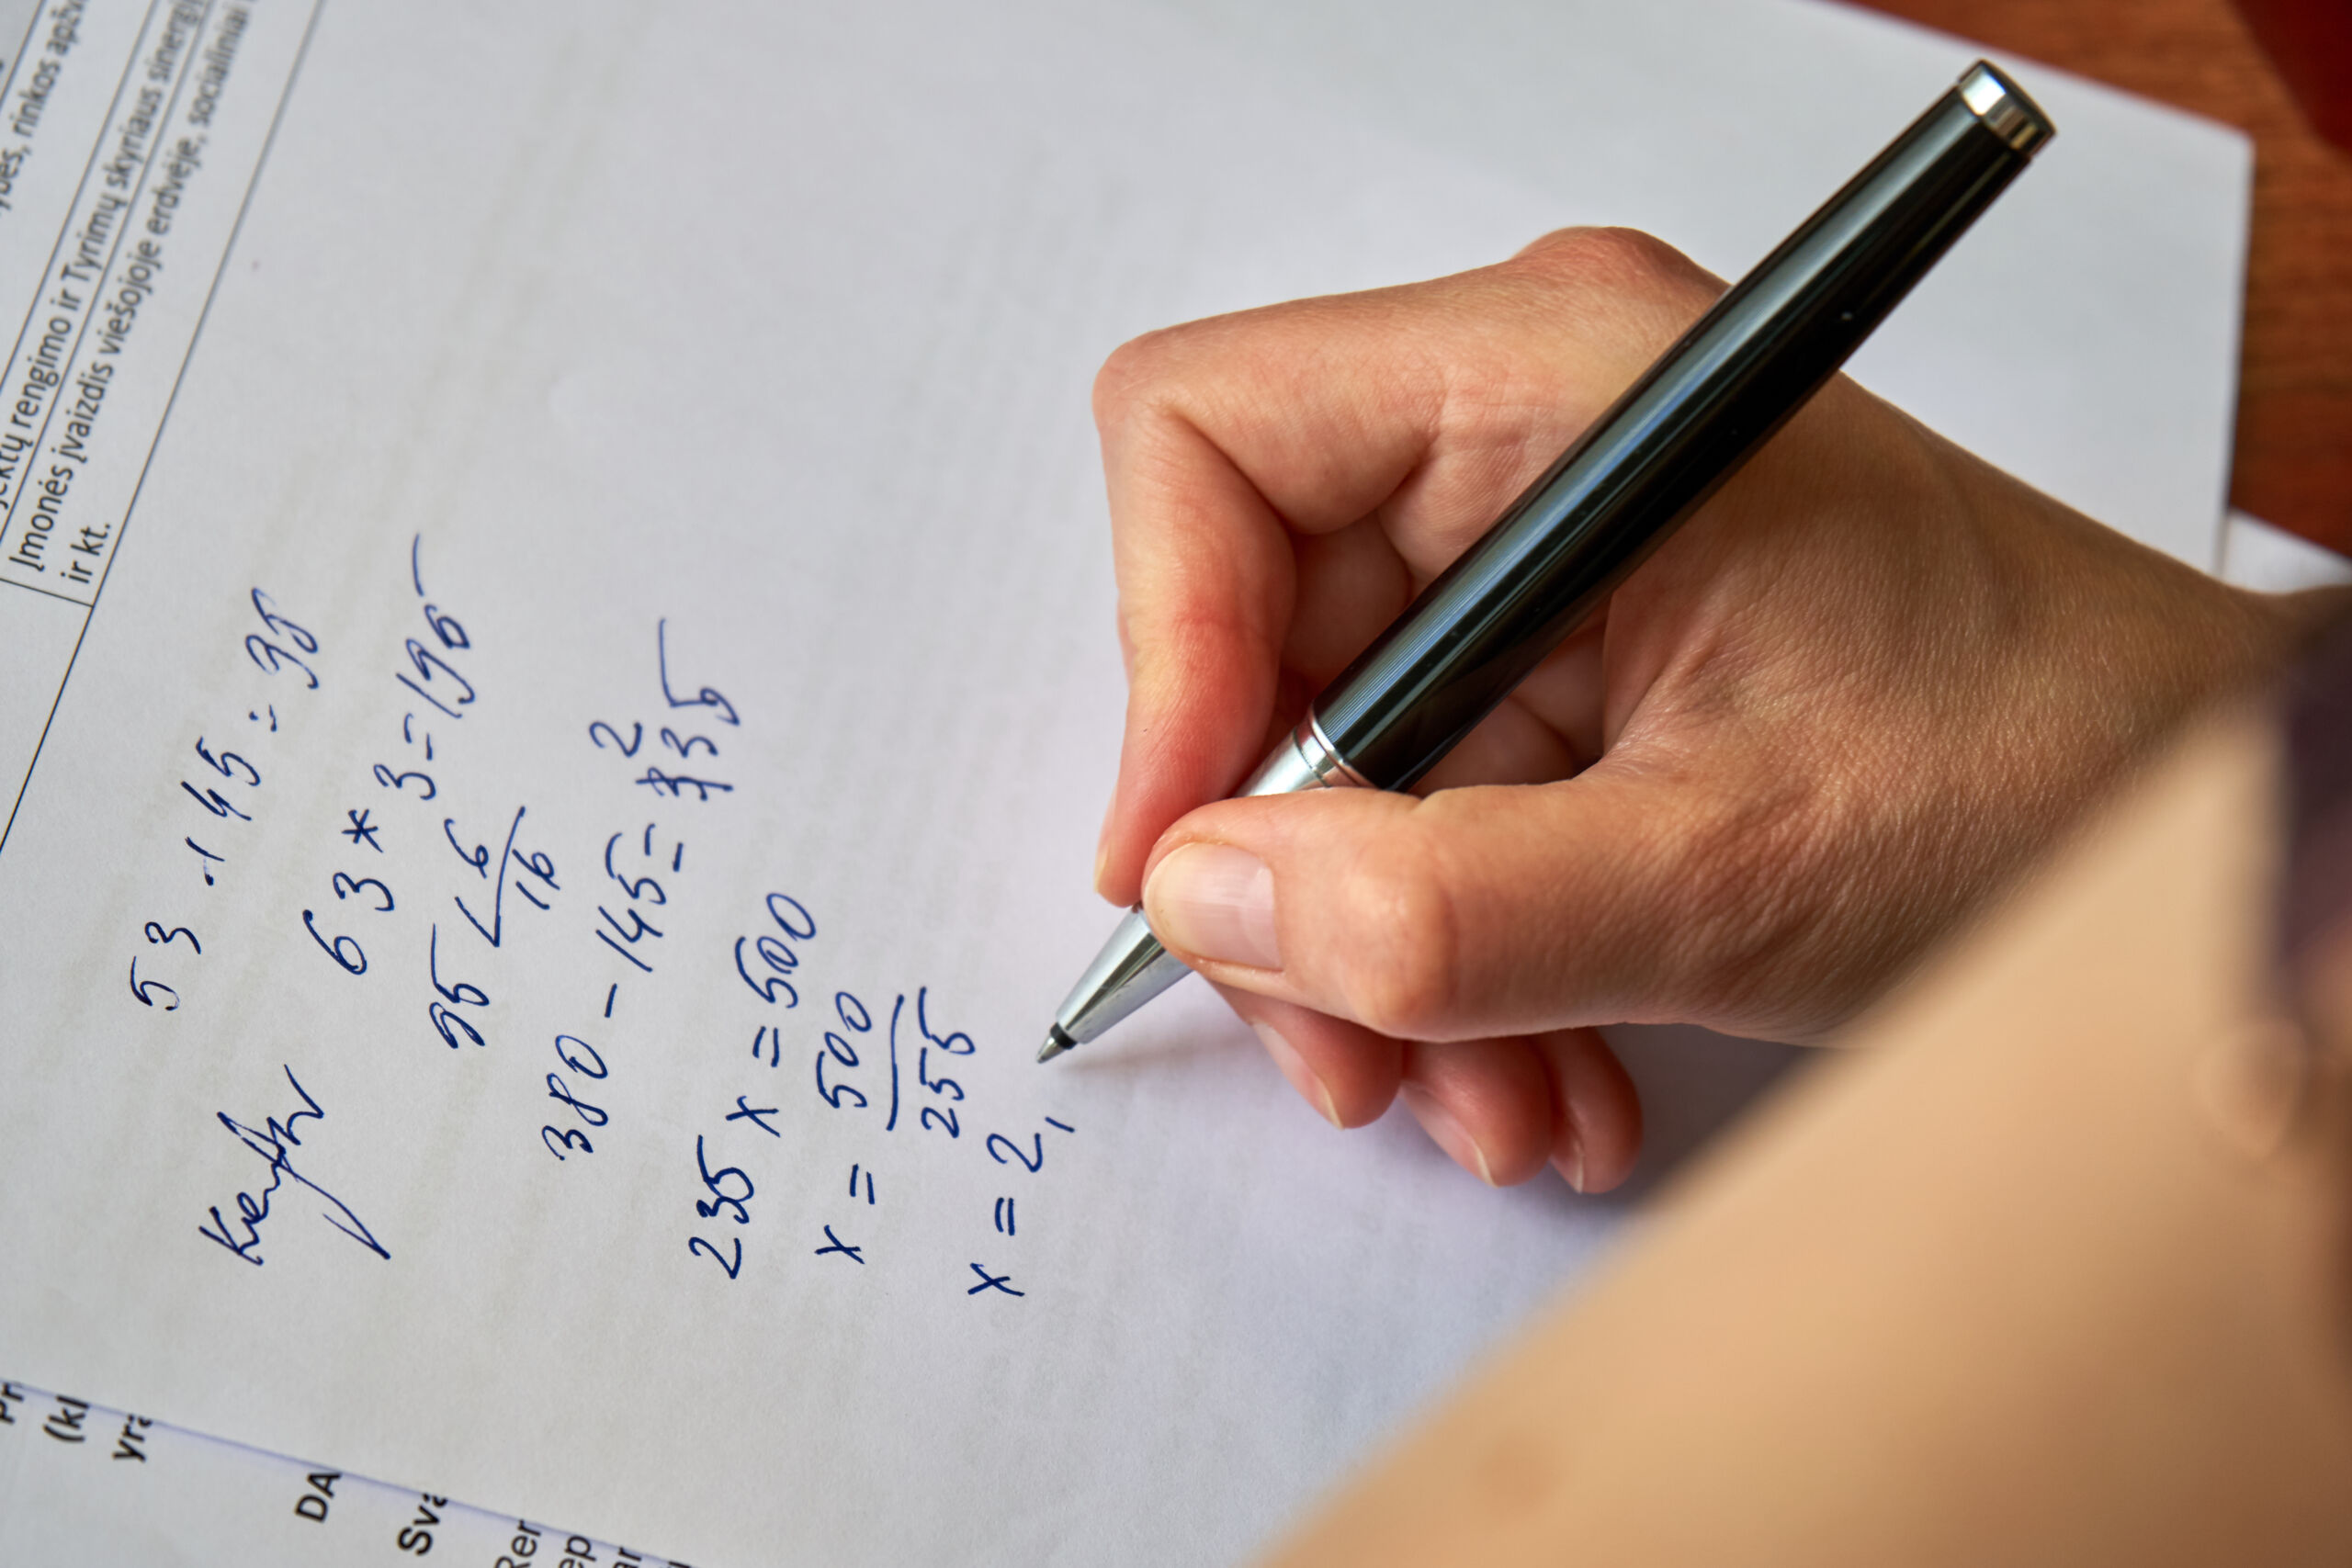 ybės, rinkos apžv
jektų rengimo ir Tyrimų skyriaus sinergij
Įmonės įvaizdis viešojoje erdvėje, socialiniai
ir kt.
53 · 145 = 38
63 * 3 = 195
95 6
16
380 - 145 = 235
235 x = 500
x = 500
255
x = 2,
Pr
(kl
yra
DA
Sva
Rer
ep
ar